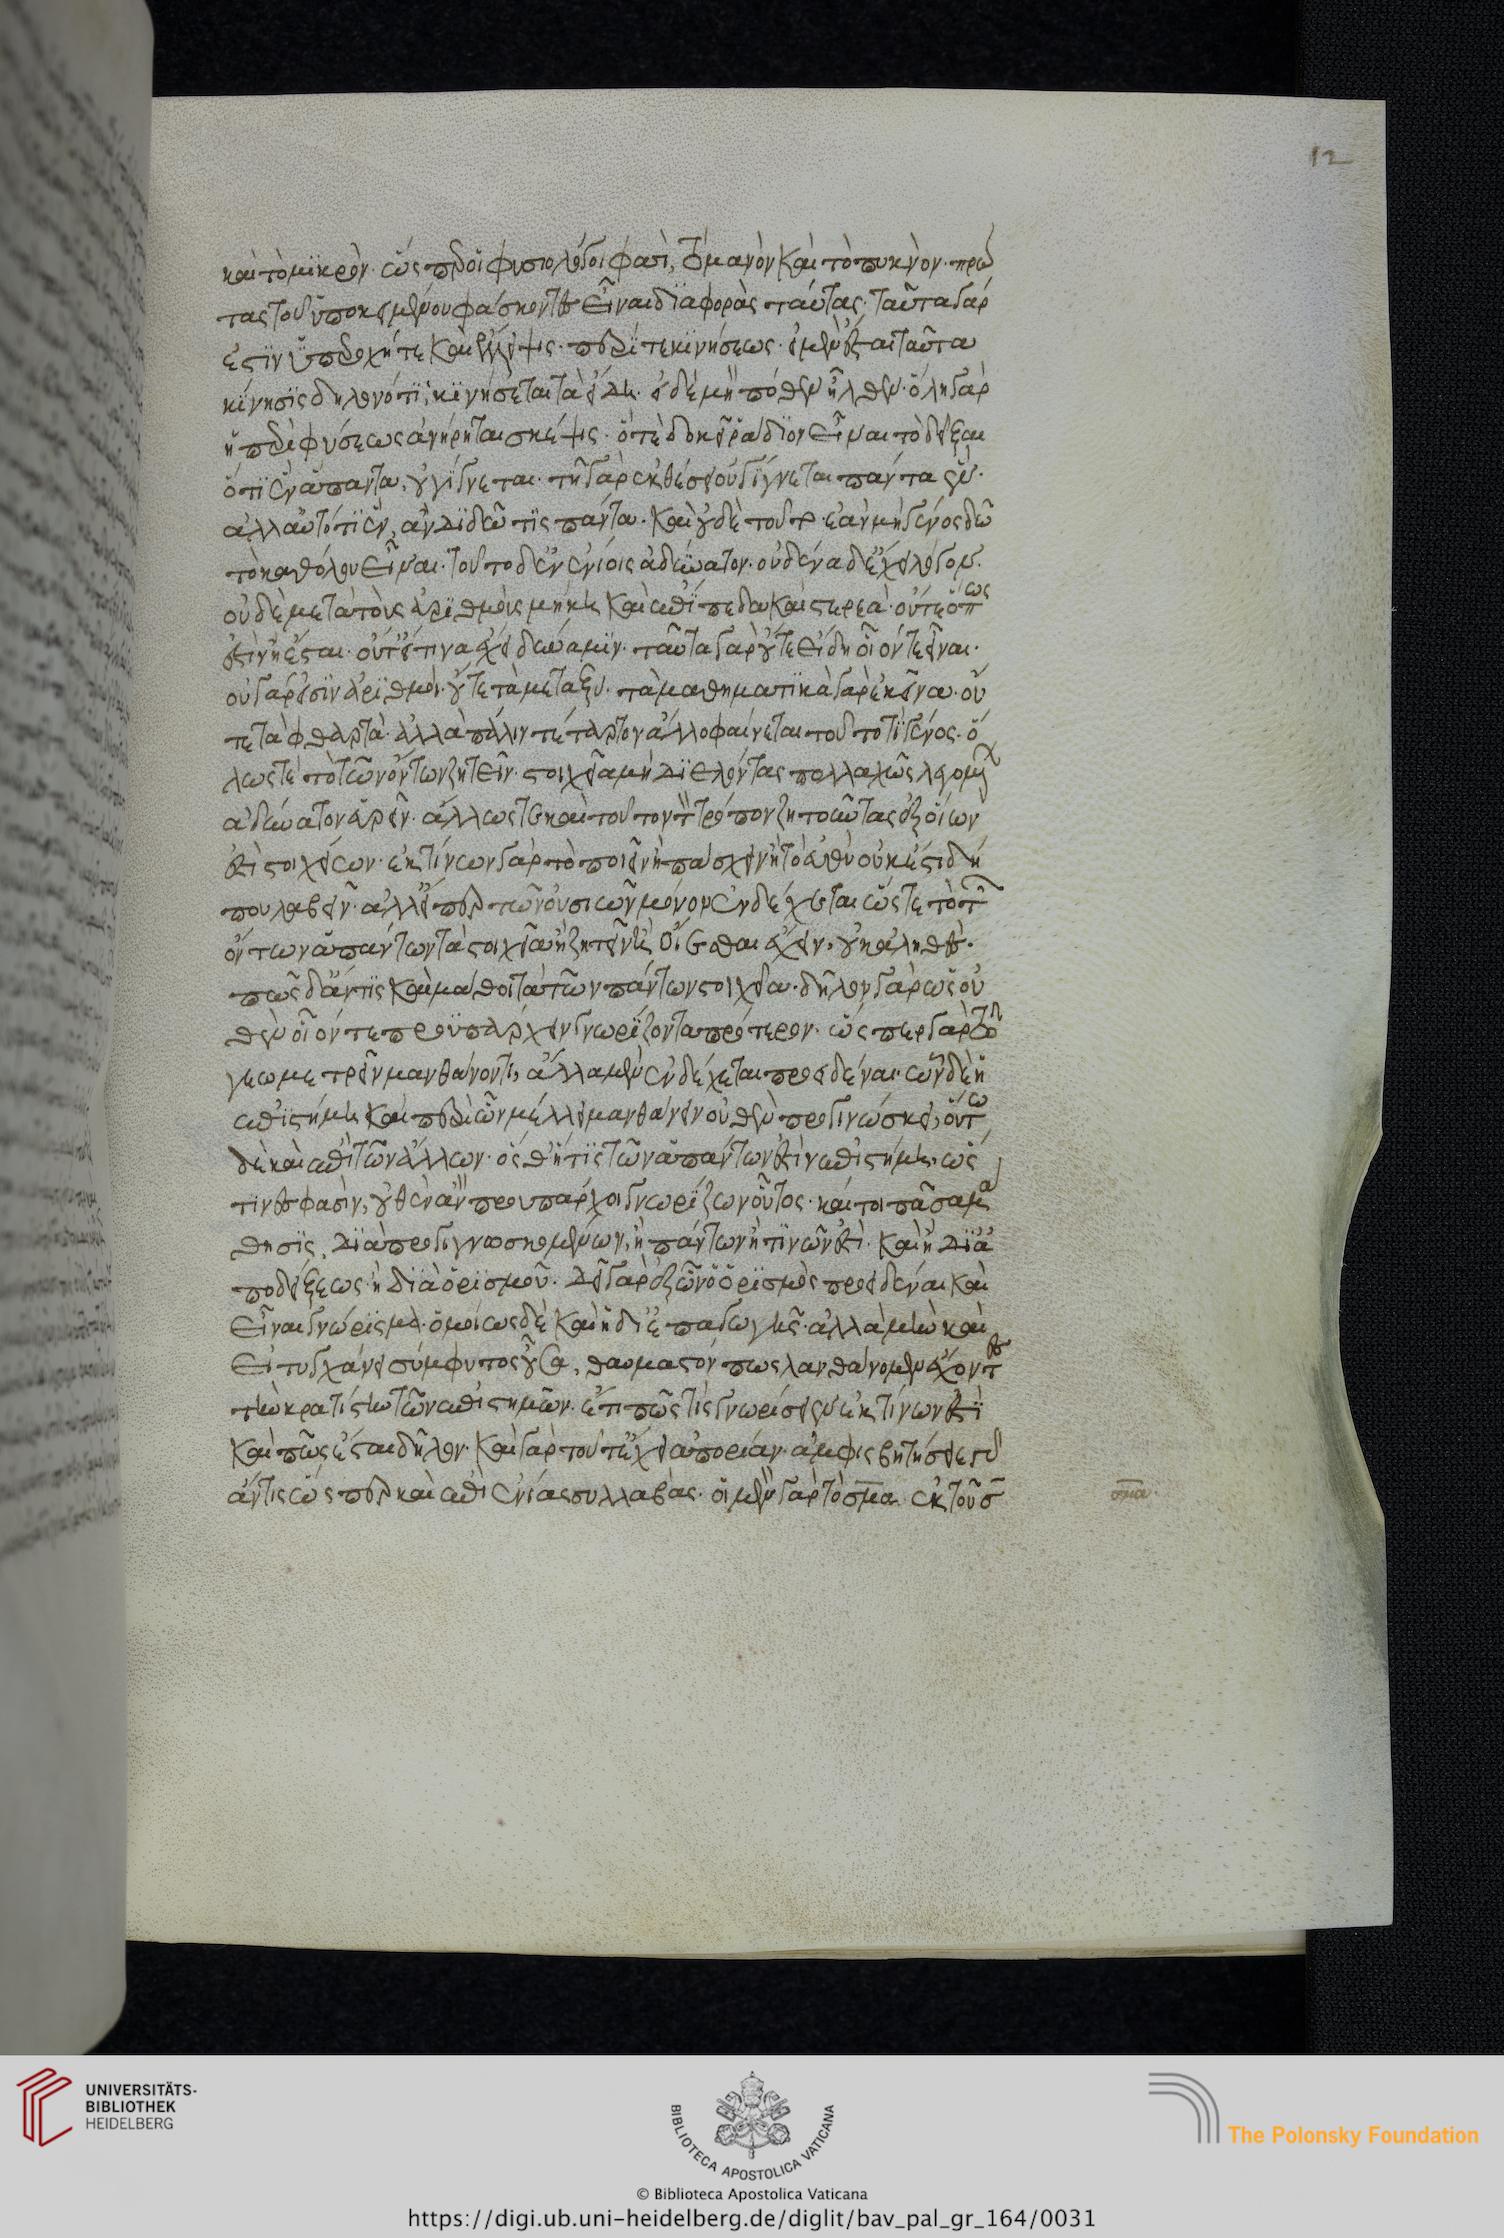 12
καὶ τὸ μικρὸν· ὥσπερ οἱ φυσιολόγοι φασὶ, τὸ μανὸν καὶ τὸ πυκνὸν· πρώ
τας τοῦ ὑποκειμένου φάσκοντες εἶναι διαφορὰς ταύτας· ταῦτα γάρ
ἐστιν ὑπεροχή τε καὶ ἔλλειψις· περί τε κινήσεως· εἰ μὲν ἔσται ταῦτα
κίνησις δηλονότι, κινήσεται τὰ εἴδη· εἰ δὲ μὴ πόθεν ἦλθεν· ὅλη γὰρ
ἡ περὶ φύσεως ἀνήρηται σκέψις· ὅ τε δοκεῖ ῥᾴδιον εἶναι τὸ δεῖξαι
ὅτι ἓν ἅπαντα, οὐ γίγνεται· τῇ γὰρ ἐκθέσει οὐ γίγνεται πάντα ἕν·
ἀλλ' αὐτό τι ἓν, ἂν διδῶ τις πάντα· καὶ οὐδὲ τοῦτο· ἐὰν μὴ γένος δῶ
τὸ καθόλου εἶναι· τοῦτο δ' ἐν ἐνίοις ἀδύνατον· οὐδένα δ' ἔχει λόγον·
οὐδὲ μετὰ τοὺς ἀριθμοὺς μήκη καὶ ἐπίπεδα καὶ στερεά· οὔτε ὅπως
ἐστὶν ἢ ἔσται· οὔτ' εἴ τινα ἔχει δύναμιν· ταῦτα γὰρ οὔτε εἴδη οἷόν τε εἶναι·
οὐ γάρ εἰσιν ἀριθμοί· οὔτε τὰ μεταξύ· τὰ μαθηματικὰ γὰρ ἐκεῖνα· οὔ
τε τὰ φθαρτά· ἀλλὰ πάλιν τέταρτον ἄλλο φαίνεται τοῦτό τι γένος· ὅ
λως τε τὸ τῶν ὄντων ζητεῖν· στοιχεῖα μὴ διελόντας πολλαχῶς λεγομένων
ἀδύνατον εὑρεῖν· ἄλλως τε καὶ τοῦτον τὸν τρόπον ζητοῦντας ἐξ οἵων
ἐστὶ στοιχείων· ἐκ τίνων γὰρ τὸ ποιεῖν ἢ πάσχειν ἢ τὸ εὐθὺ οὐκ ἔστι δή
που λαβεῖν· ἀλλ' εἴπερ τῶν οὐσιῶν μόνον ἐνδέχεται ὥστε τὸ τῶν
ὄντων ἁπάντων τὰ στοιχεῖα ἢ ζητεῖν ἢ οἴεσθαι ἔχειν, οὐκ ἀληθές·
πῶς δ' ἄν τις καὶ μάθοι τὰ τῶν πάντων στοιχεῖα· δῆλον γὰρ ὡς οὐ
θὲν οἷόν τε προϋπάρχειν γνωρίζοντα πρότερον· ὥσπερ γὰρ τῷ
γεωμετρεῖν μανθάνοντι, ἄλλα μὲν ἐνδέχεται προειδέναι· ὧν δὲ ἡ
ἐπιστήμη καὶ περὶ ὧν μέλλει μανθάνειν οὐθὲν προγινώσκει, οὕτω
δὲ καὶ ἐπὶ τῶν ἄλλων· ὥστ' εἴ τις τῶν ἁπάντων ἐστὶν ἐπιστήμη, ὥς
τινές φασιν, οὐθὲν ἂν προϋπάρχοι γνωρίζων οὗτος· καίτοι πᾶσα μά
θησις, διὰ προγιγνωσκομένων, ἢ πάντων ἢ τινῶν ἐστὶ· καὶ ἡ δι' ἀ
ποδείξεως· ἡ δι' ὁρισμοῦ· δεῖ γὰρ ἐξ ὧν ὁ ὁρισμὸς προειδέναι καὶ
εἶναι γνώριμα· ὁμοίως δὲ καὶ ἡ δι' ἐπαγωγῆς· ἀλλὰ μὴν καὶ
εἰ τυγχάνει σύμφυτος οὖσα, θαυμαστόν πως λανθάνομεν ἔχοντες
τὴν κρατίστην τῶν ἐπιστημῶν· ἔτι πῶς τις γνωρίσειεν ἐκ τίνων ἐστὶ
καὶ πῶς ἔσται δῆλον· καὶ γὰρ τοῦτ' ἔχει ἀπορίαν· ἀμφισβητήσειε γὰρ
ἄν τις ὥσπερ καὶ ἐπὶ ἐνίας συλλαβάς· οἱ μὲν γὰρ τὸ σμα ἐκ τοῦ σ
σμα·
UNIVERSITÄTS-
BIBLIOTHEK
HEIDELBERG
BIBLIOTECA APOSTOLICA VATICANA
The Polonsky Foundation
© Biblioteca Apostolica Vaticana
https://digi.ub.uni-heidelberg.de/diglit/bav_pal_gr_164/0031